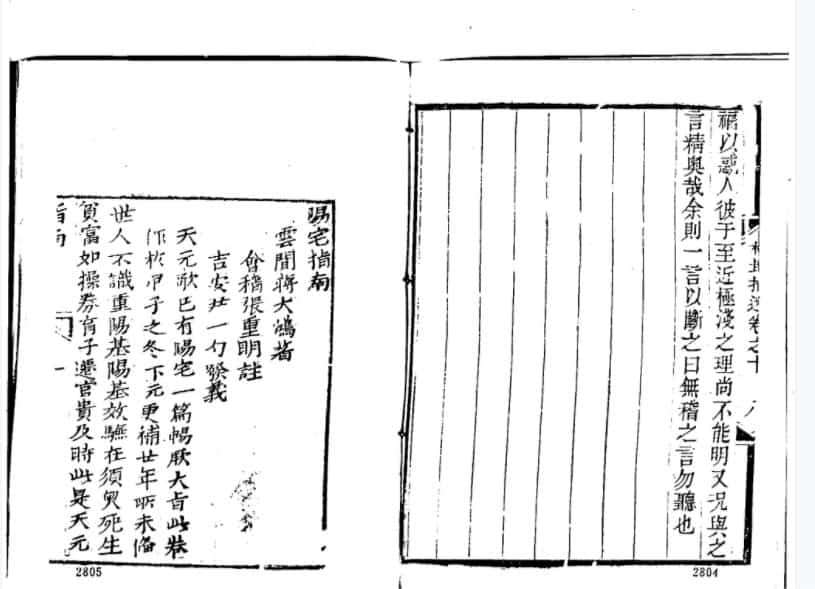 相地指迷卷之十 八
禍以惑人彼于至近極淺之理尚不能明又况與之
言精奥哉余則一言以斷之曰無稽之言勿聽也
2804
陽宅指南
雲間蔣大鴻著
會稽張重明註
吉安尹一勺發義
天元歌已有陽宅一篇暢厥大旨此卷
作於甲子之冬下元更補廿年所未備
世人不識重陽基陽基效驗在須臾死生
貧富如操券育子遷官貴及時此是天元
指南 一
2805